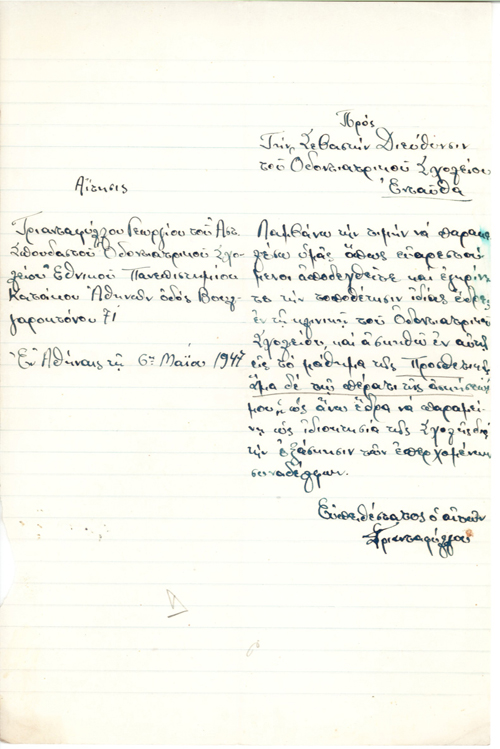 Πρός
Τήν Σεβαστήν Διεύθυνσιν
τοῦ Ὀδοντιατρικοῦ Σχολείου
Ἐνταῦθα
Αἴτησις
Τριανταφύλλου Γεωργίου τοῦ Ἀστ.
Σπουδαστοῦ Ὀδοντιατρικοῦ Σχο-
λείου Ἐθνικοῦ Πανεπιστημίου
Κατοίκου Ἀθηνῶν ὁδός Βουλγ-
γαροκτόνου 71
Ἐν Ἀθήναις τῇ 6ῃ Μαΐου 1947
Λαμβάνω τήν τιμήν νά παρακα-
λέσω ὑμᾶς ὅπως εὐαρεστού
μενοι ἀποδεχθεῖτε καί ἐγκρίνη-
τε τήν τοποθέτησιν ἰδίας ἕδρας
ἐν τῇ κλινικῇ τοῦ Ὀδοντιατρικοῦ
Σχολείου, καί ἀσκηθῶ ἐν αὐτῇ
εἰς τό μάθημα τῆς Προσθετικῆς
ἅμα δέ τῷ πέρατι τῆς ἀσκήσεώς
μου ἡ ὡς ἄνω ἕδρα νά παραμεί-
νῃ ὡς ἰδιοκτησία τῆς Σχολῆς διά
τήν ἐξάσκησιν τῶν ἐπερχομένων
συναδέλφων.
Εὐπειθέστατος ὁ αἰτῶν
Τριανταφύλλου